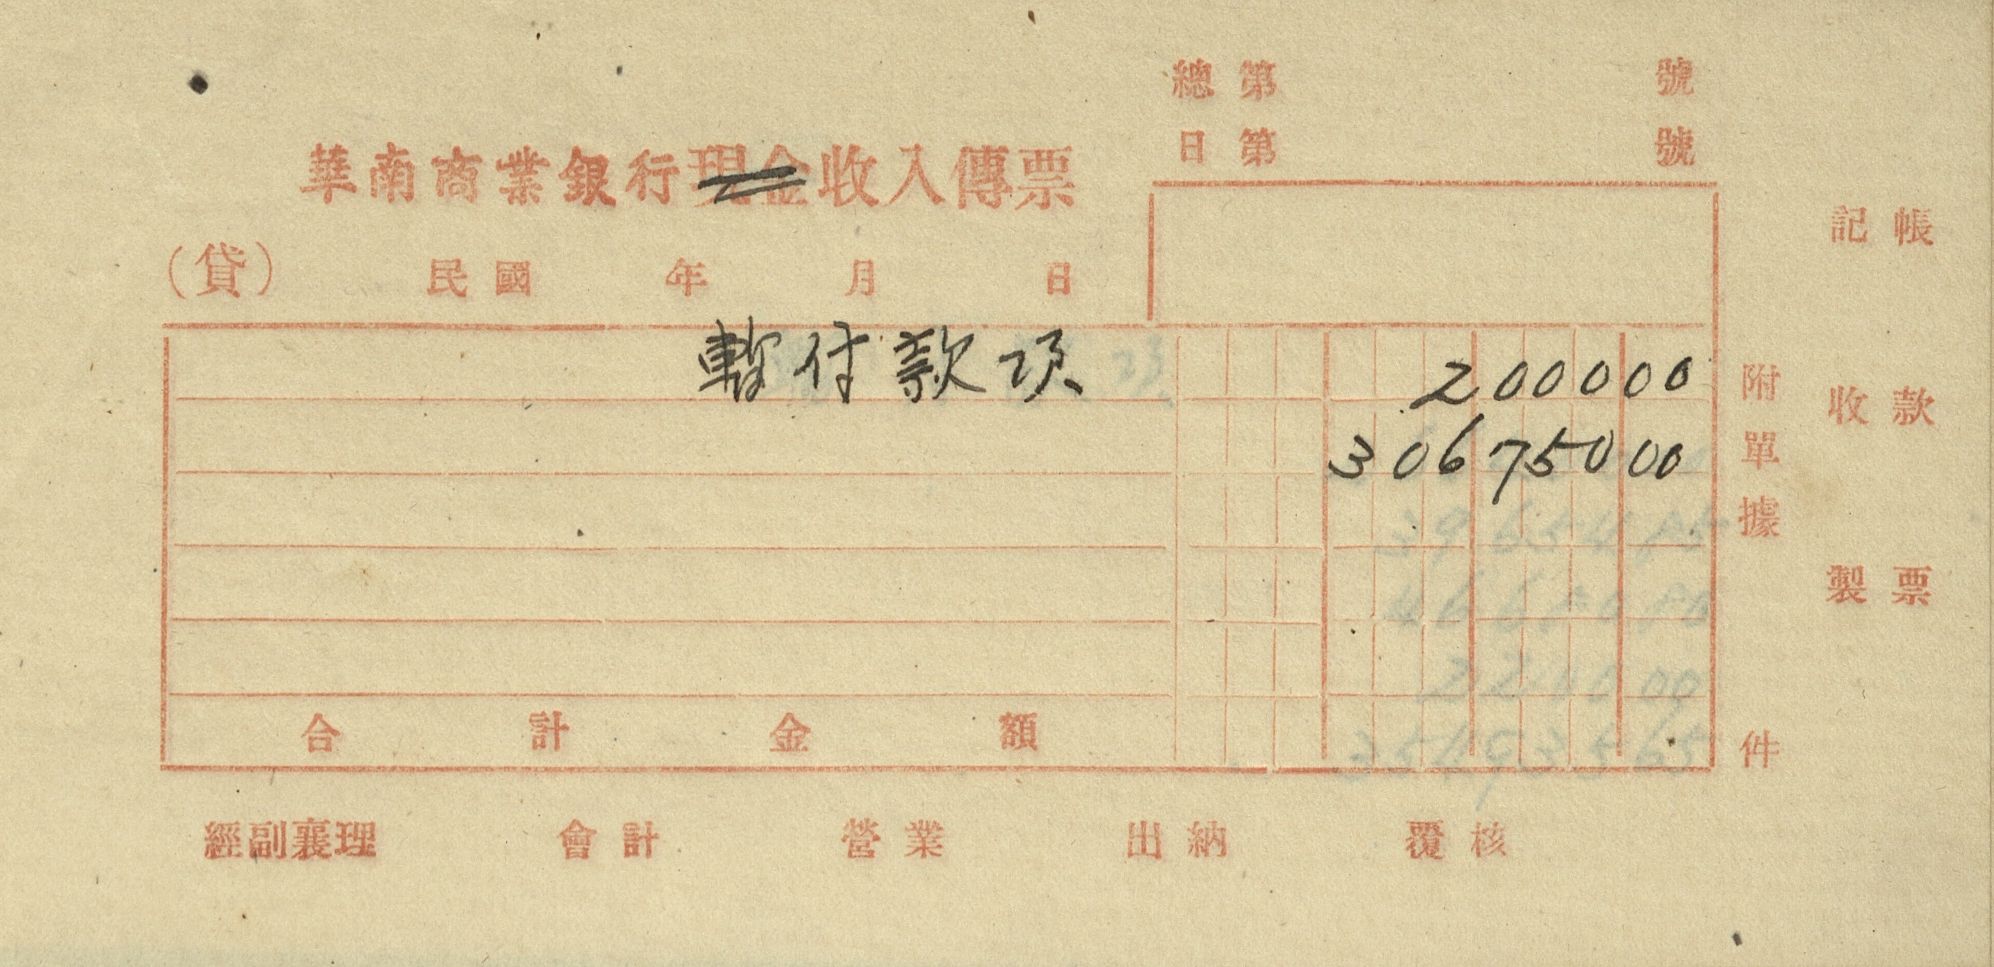 總第 號
日第 號
華南商業銀行現金收入傳票
(貸) 民國 年 月 日
記帳
暫付款項 200000
30675000
附單據 件
收款
製票
合計金額
經副襄理 會計 營業 出納 覆核